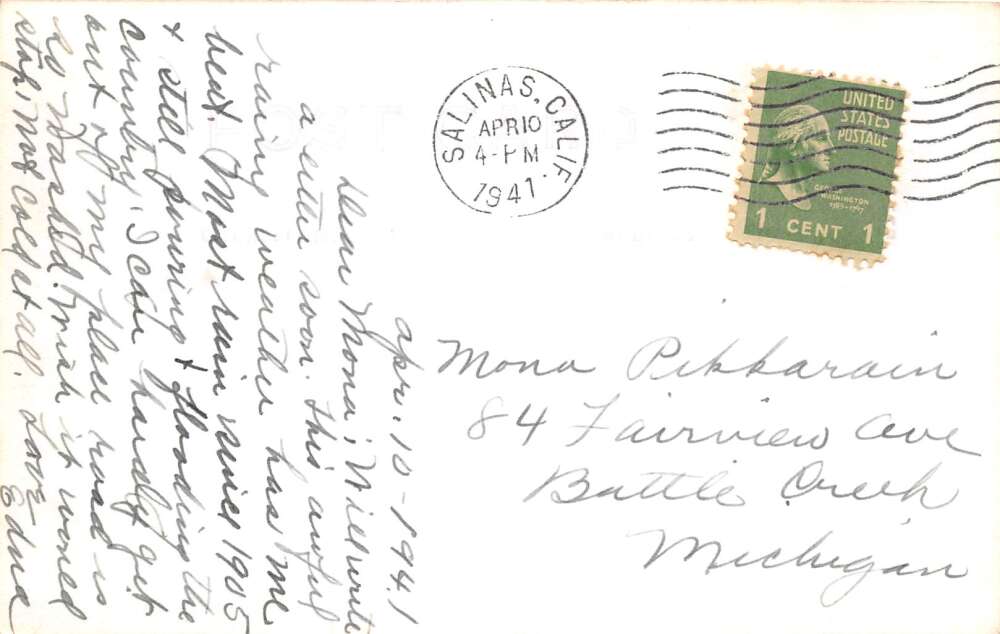 apr. 10 - 1941
Dear Mona; Will write
a letter soon. This awful
rainy weather has me
beat. Most rain since 1905
& still pouring & flooding the
country. I can hardly get
out of my place road is
so washed. Wish it would
stop. Not cold at all. Love
Edna
SALINAS, CALIF.
APR 10
4-PM
1941
UNITED
STATES
POSTAGE
GEORGE
WASHINGTON
1789-1797
1 CENT 1
Mona Pikkarain
84 Fairview Ave
Battle Creek
Michigan